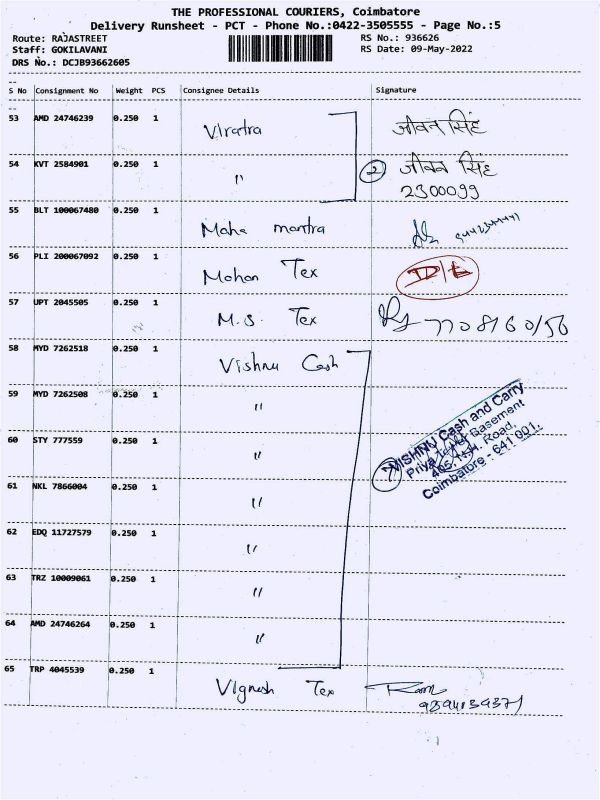 THE PROFESSIONAL COURIERS, Coimbatore
Delivery Runsheet - PCT - Phone No.:0422-3505555 - Page No.:5
Route: RAJASTREET
RS No.: 936626
Staff: GOKILAVANI
RS Date: 09-May-2022
DRS No.: DCJB93662605
S No Consignment No Weight PCS Consignee Details Signature
53 AMD 24746239 0.250 1 Viratra जीवन सिंह
54 KVT 2584901 0.250 1 " 2 जीवन सिंह
2300099
55 BLT 100067480 0.250 1 Maha mantra
56 PLI 200067092 0.250 1 Mohan Tex D/L
57 UPT 2045505 0.250 1 M.S. Tex 7708160156
58 MYD 7262518 0.250 1 Vishnu Cash
59 MYD 7262508 0.250 1 "
60 STY 777559 0.250 1 "
VISHNU Cash and Carry
Priya Tower Basement
465, N.H. Road,
Coimbatore - 641 001.
7
61 NKL 7866004 0.250 1 "
62 EDQ 11727579 0.250 1 "
63 TRZ 10009061 0.250 1 "
64 AMD 24746264 0.250 1 "
65 TRP 4045539 0.250 1 Vignesh Tex Ram